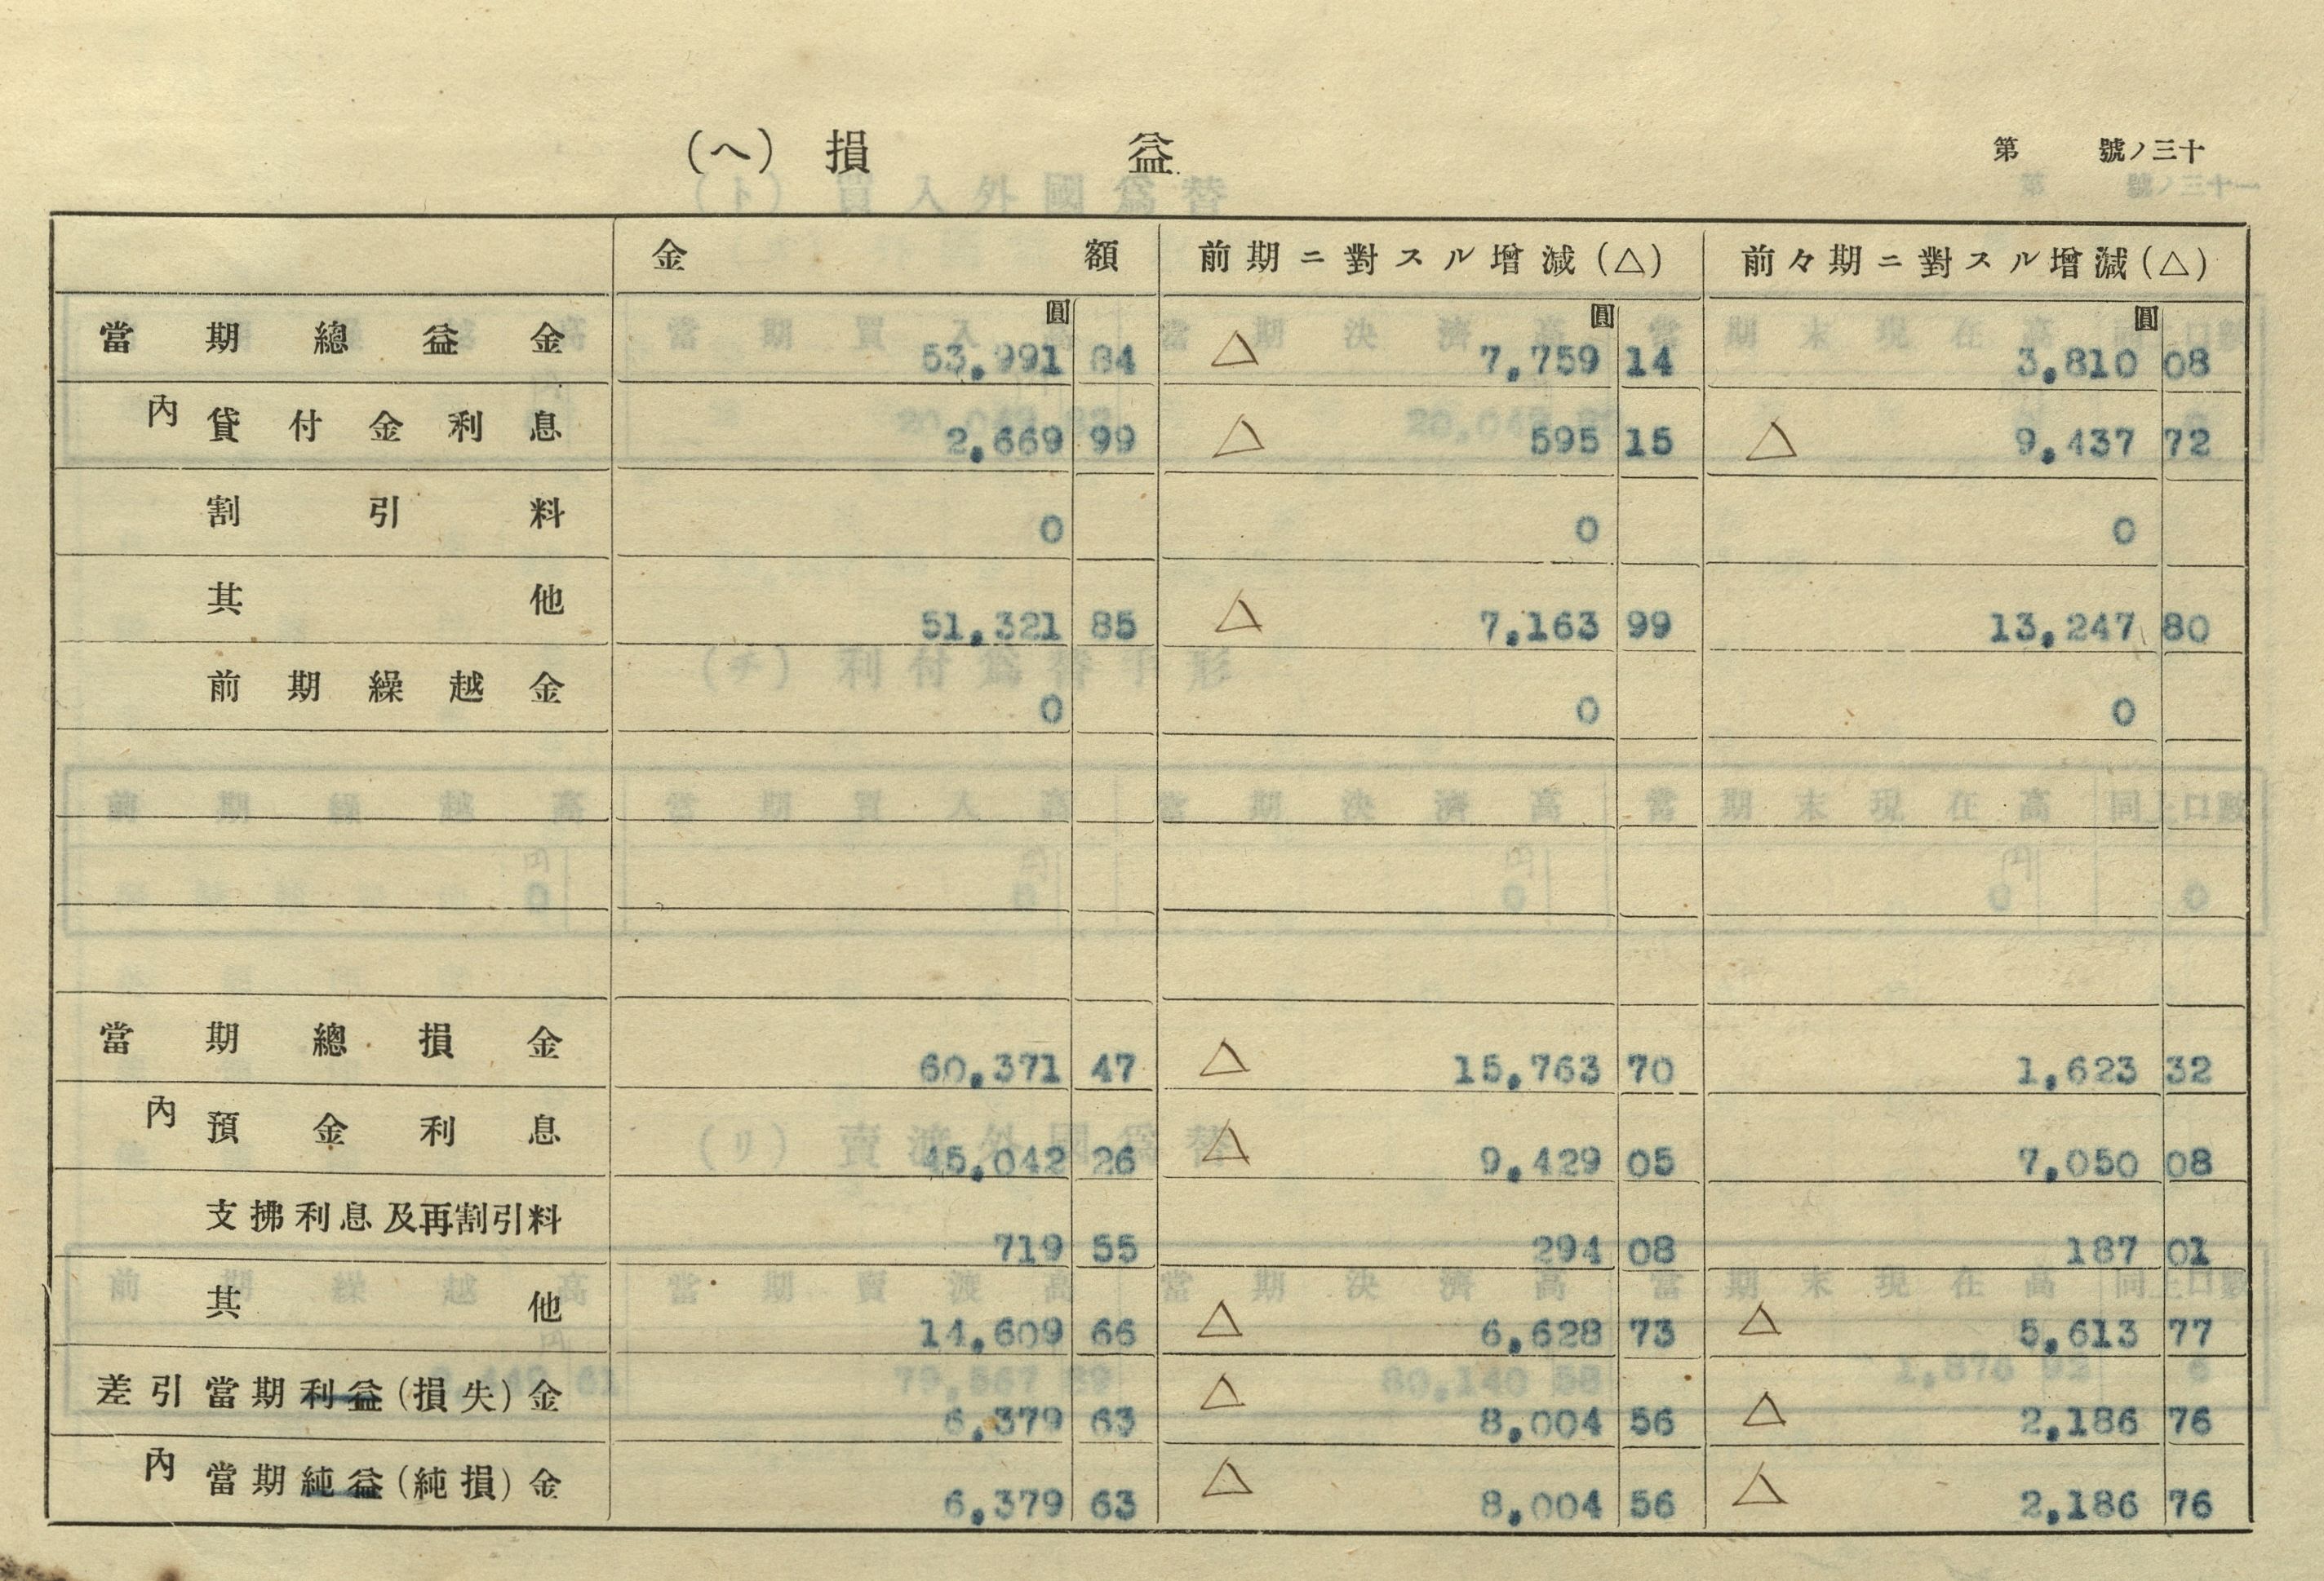 (ヘ) 損益
第 號ノ三十
金額 前期ニ對スル增減(△) 前々期ニ對スル增減(△)
圓 圓 圓
當期總益金 53,991 84 △ 7,759 14 3,810 08
內 貸付金利息 2,669 99 △ 595 15 △ 9,437 72
割引料 0 0 0
其他 51,321 85 △ 7,163 99 13,247 80
前期繰越金 0 0 0
當期總損金 60,371 47 △ 15,763 70 1,623 32
內 預金利息 45,042 26 △ 9,429 05 7,050 08
支拂利息及再割引料 719 55 294 08 187 01
其他 14,609 66 △ 6,628 73 △ 5,613 77
差引當期利益(損失)金 6,379 63 △ 8,004 56 △ 2,186 76
內 當期純益(純損)金 6,379 63 △ 8,004 56 △ 2,186 76